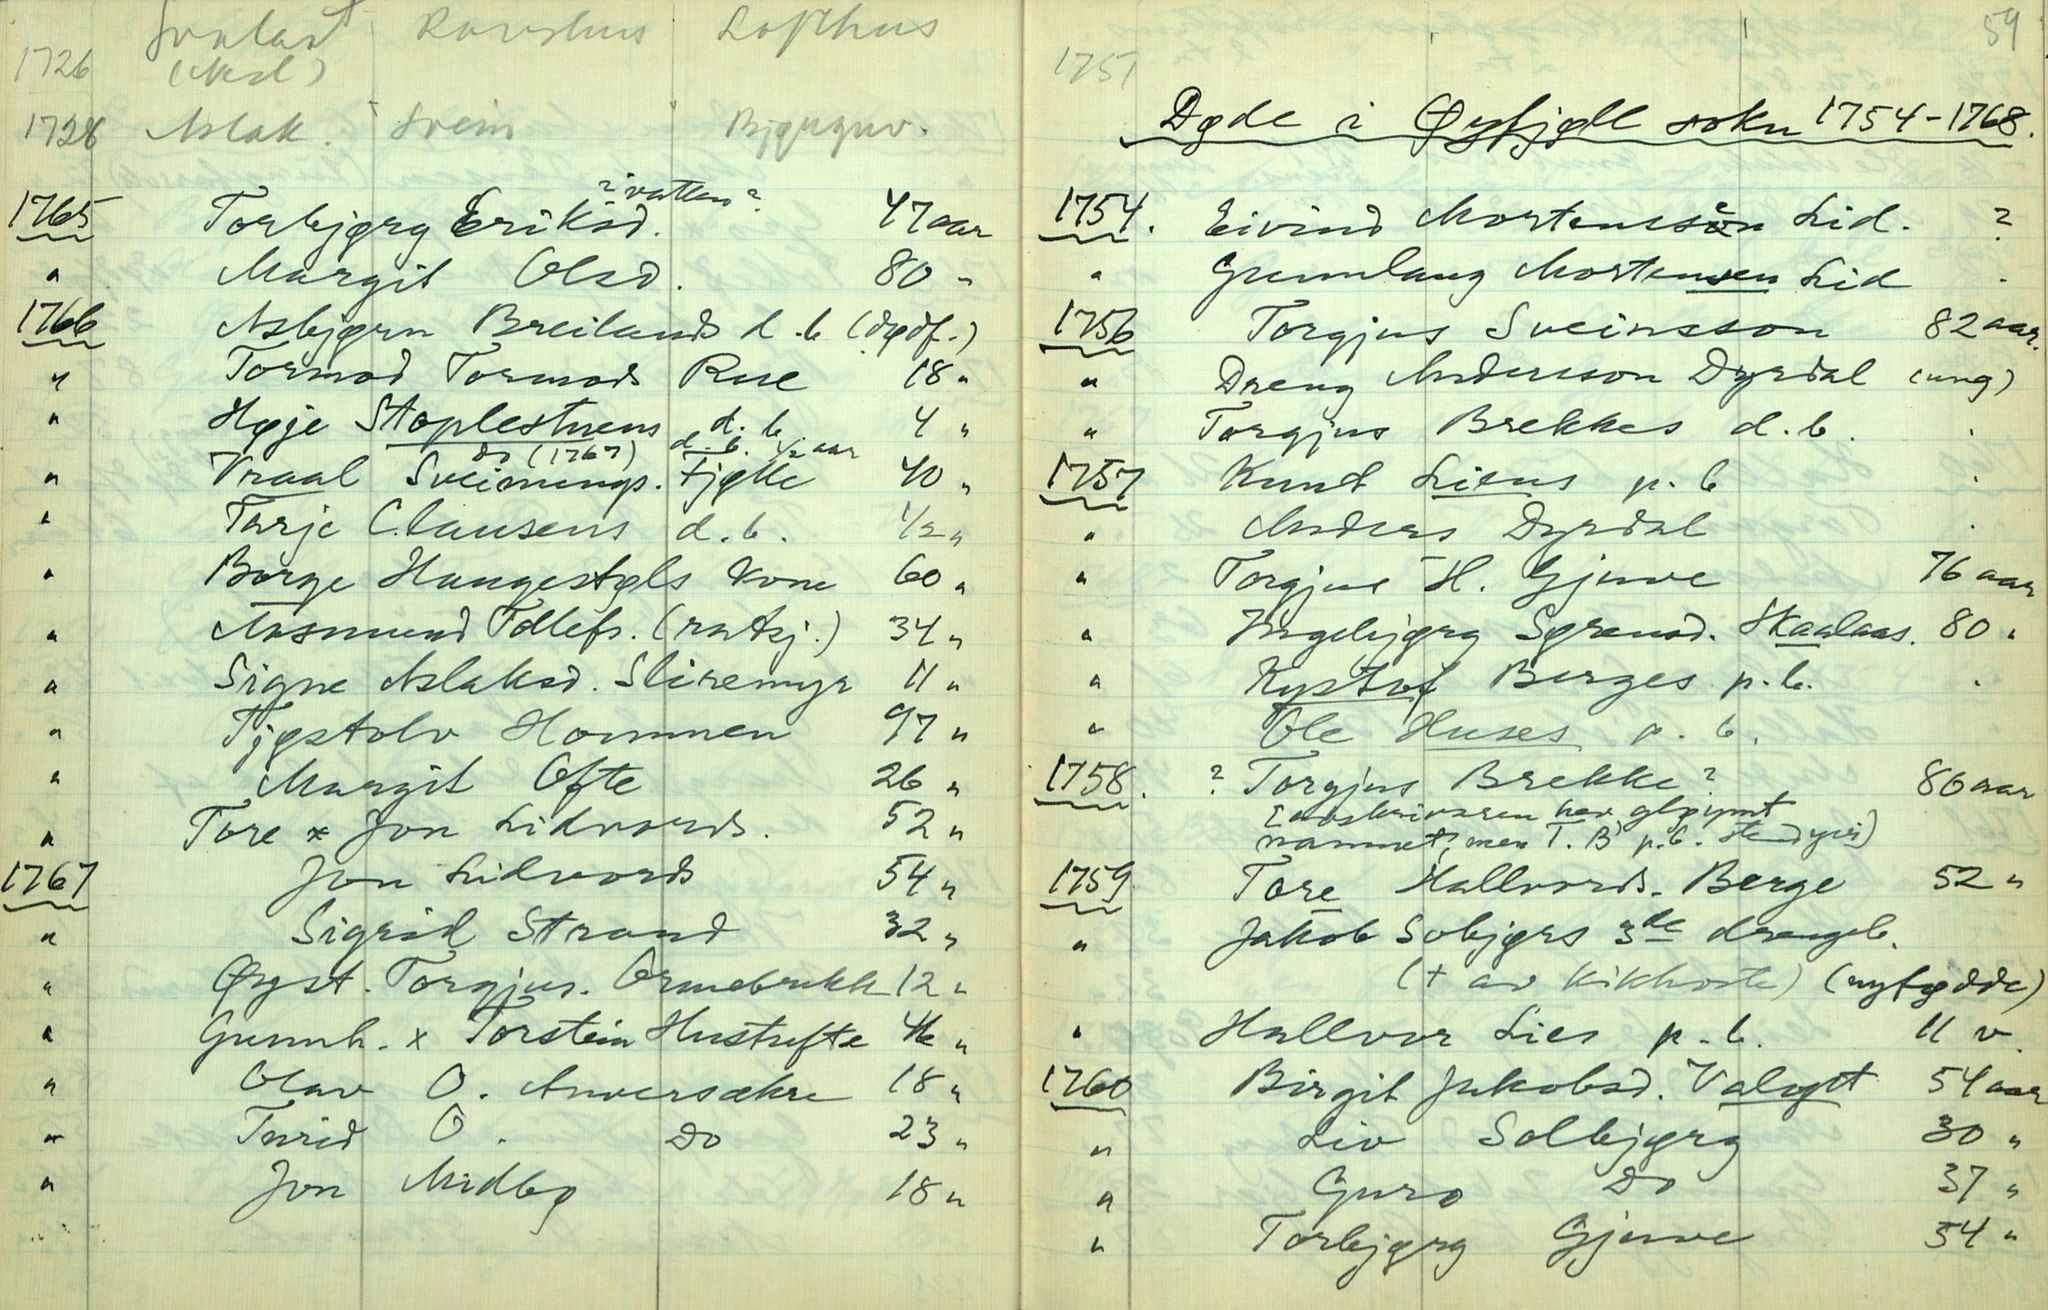 Rovshus Lofthus
1726
1728 Aslak Svein Bjørguv.
? vatten ?
1765 Torbjørg Eriksd. 47 aar
" Margit Olsd. 80 "
1766 Asbjørn Breilands d.b. (dødf.)
" Tormod Tormods Rue 18 "
" Høje Staplestuens d.b. 4 "
Do (1767) d.b. 1/2 aar
" Vraal Sveinungs. Fjølle 40 "
" Tarje Clausens d.b. 1/2 "
" Borge Haugestøls kone 60 "
" Aasmund Tollefs. 34 "
" Signe Aslaksd. Sliremyr 11 "
" Tjøstolv Hommen 97 "
" Margit Ofte 26 "
" Tore x Jon Lidvords. 52 "
1767 Jon Lidvords 54 "
" Sigrid Strand 32 "
" Øyst. Torgjus. Ormebrekk 12 "
" Gunnh. x Torstein Hustufte "
" Olav O. Anversækre 18 "
" Turid O. Do 23 "
" Jon Midbø 18 "
59
1751
Døde i Øyfjell sokn 1754-1768.
1754. Eivind Mortensson Lid. ?
" Gunnlaug Mortensen Lid "
1756 Torgjus Sveinsson 82 aar.
" Dreng Andersson Dyrdal (ung)
" Torgjus Brekkes d.b. "
1757 Knut Liens p.b. "
" Anders Dyrdal "
" Torgjus H. Gjuve 76 aar
" Ingebjørg Sørensd. Skaalaas. 80 "
" Kystof Berges p.b. "
" Ole Huses p.b.
1758. ? Torgjus Brekke ? 86 aar
har gløymt
namnet, men T. B. p.b.
1759 Tore Hallvords. Berge 52 "
" Jakob Sobjørs 3de drengeb.
(+ av Kikhoste) (nyfødde)
" Hallvor Lies p.b. 11 v.
1760 Birgit Jakobsd. Valøyt 54 aar
" Liv Solbjørg 30 "
" Guro Do 37 "
" Torbjørg Gjuve 54 "